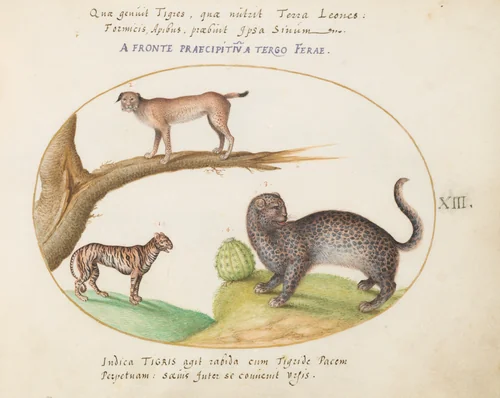 Quæ genuit Tigres, quæ nutrit Terra Leones:
Formicis, Apibus, præbuit Ipsa Sinum
A FRONTE PRAECIPITIŪ A TERGO FERAE.
XIII.
Indica TIGRIS agit rabida cum Tigride Pacem
Perpetuam: sæuis Inter se conuenit Vrsis.